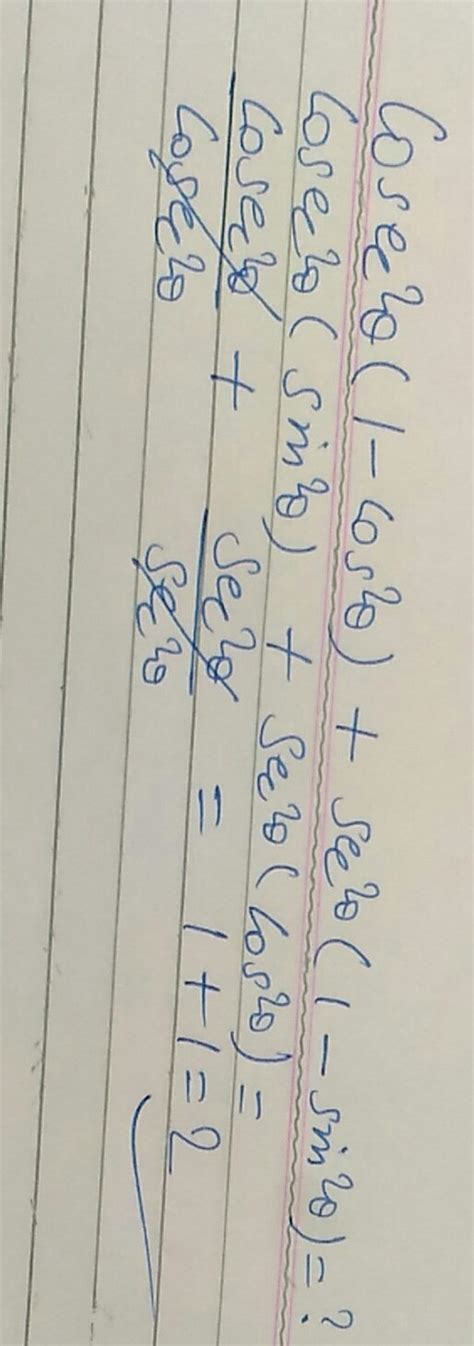 Cosec²θ(1-Cos²θ) + Sec²θ(1-sin²θ)=?
Cosec²θ(sin²θ) + Sec²θ(Cos²θ)=
Cosec²θ/Cosec²θ + Sec²θ/Sec²θ = 1+1=2